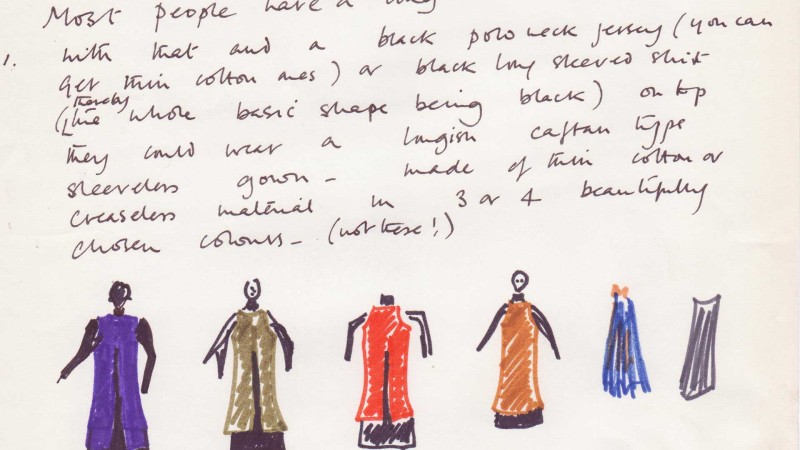 Most people have a long
1. with that and a black polo neck jersey (you can
get thin cotton ones) or black long sleeved shirt
(thereby the whole basic shape being black) on top
they could wear a longish caftan type
sleeveless gown - made of thin cotton or
creaseless material in 3 or 4 beautifully
chosen colours - (not these!)